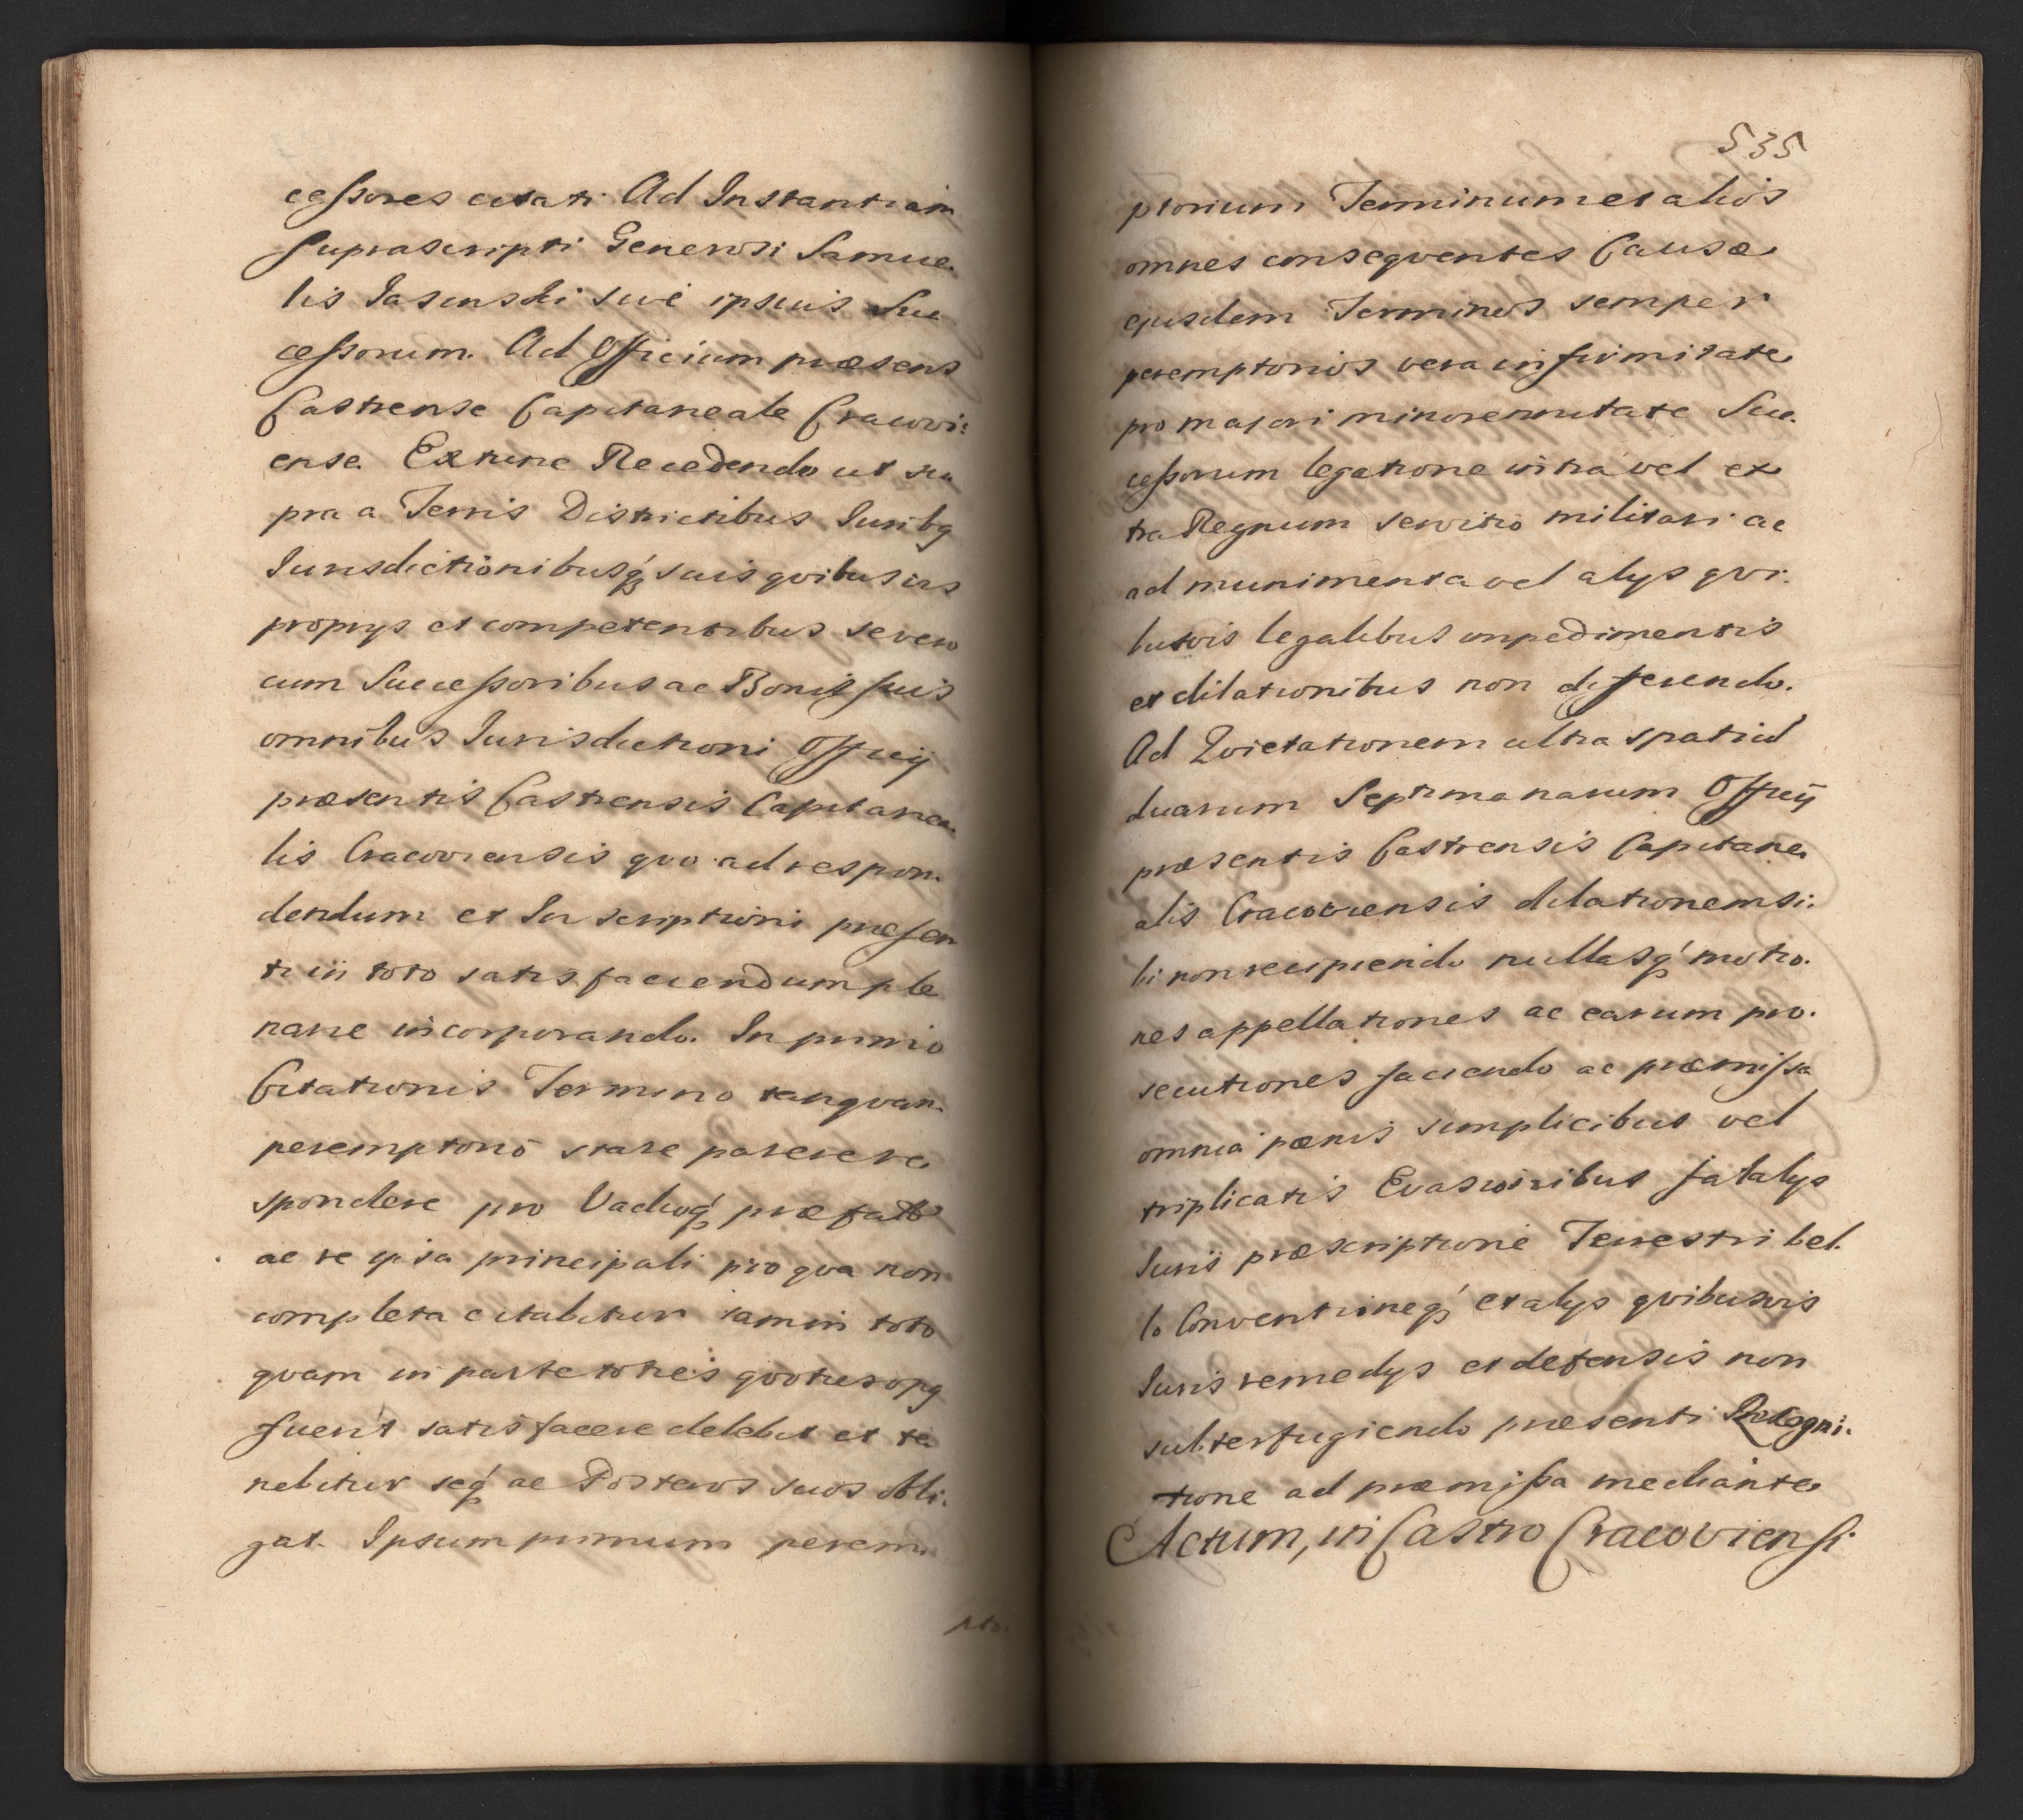 cessores citati Ad Instantiam
Suprascripti Generosi Samue.
lis Jasenski sive ipsius Suc
cessorum. Ad Officium præsens
Castrense Capitaneale Cracovi:
ense. Extunc Recedendo ut su
pra a Terris Districtibus Juribq
Jurisdictionibusq suis qvibusvis
proprijs et competentibus se vero
cum Successoribus ac Bonis suis
omnibus Jurisdictioni Officij
præsentis Castrensis Capitanea.
lis Cracoviensis qvo ad respon.
dendum et Inscriptioni præsen
ti in toto satisfaciendum ple
narie incorporando. In primo
Citationis Termino tanqvam.
peremptorio stare parere re
spondere pro Vadioq præfato
ac re ipsa principali pro qva non
completa citabitur tam in toto
qvam in parte toties qvoties opq
fuerit satisfacere debebit et te
nebitur seq ac Posteros suos obli.
gat. Ipsum primum perem.
pto.
535
ptorium Terminum et alios
omnes conseqventes Causæ
ejusdem Terminos semper
peremptorios vera infirmitate
pro majori minorennitate Suc.
cessorum legatione intra vel ex
tra Regnum servitio militari ac
ad munimenta vel alijs qvi.
busvis legalibus impedimentis
et dilationibus non differendo.
Ad Qvietationem ultra spatiū
duarum Septimanarum Officij
præsentis Castrensis Capitane
alis Cracoviensis dilationem si:
bi non recipiendo nullasq motio.
nes appellationes ac earum pro.
secutiones faciendo ac præmissa
omnia pœnis simplicibus vel
triplicatis Evasionibus fatalijs
Juris præscriptione Terrestri bel.
lo Conventioneq et alijs qvibusvis
Juris remedijs et defensis non
subterfugiendo præsenti Recogni.
tione ad præmissa mediante
Actum, in Castro Cracoviensi